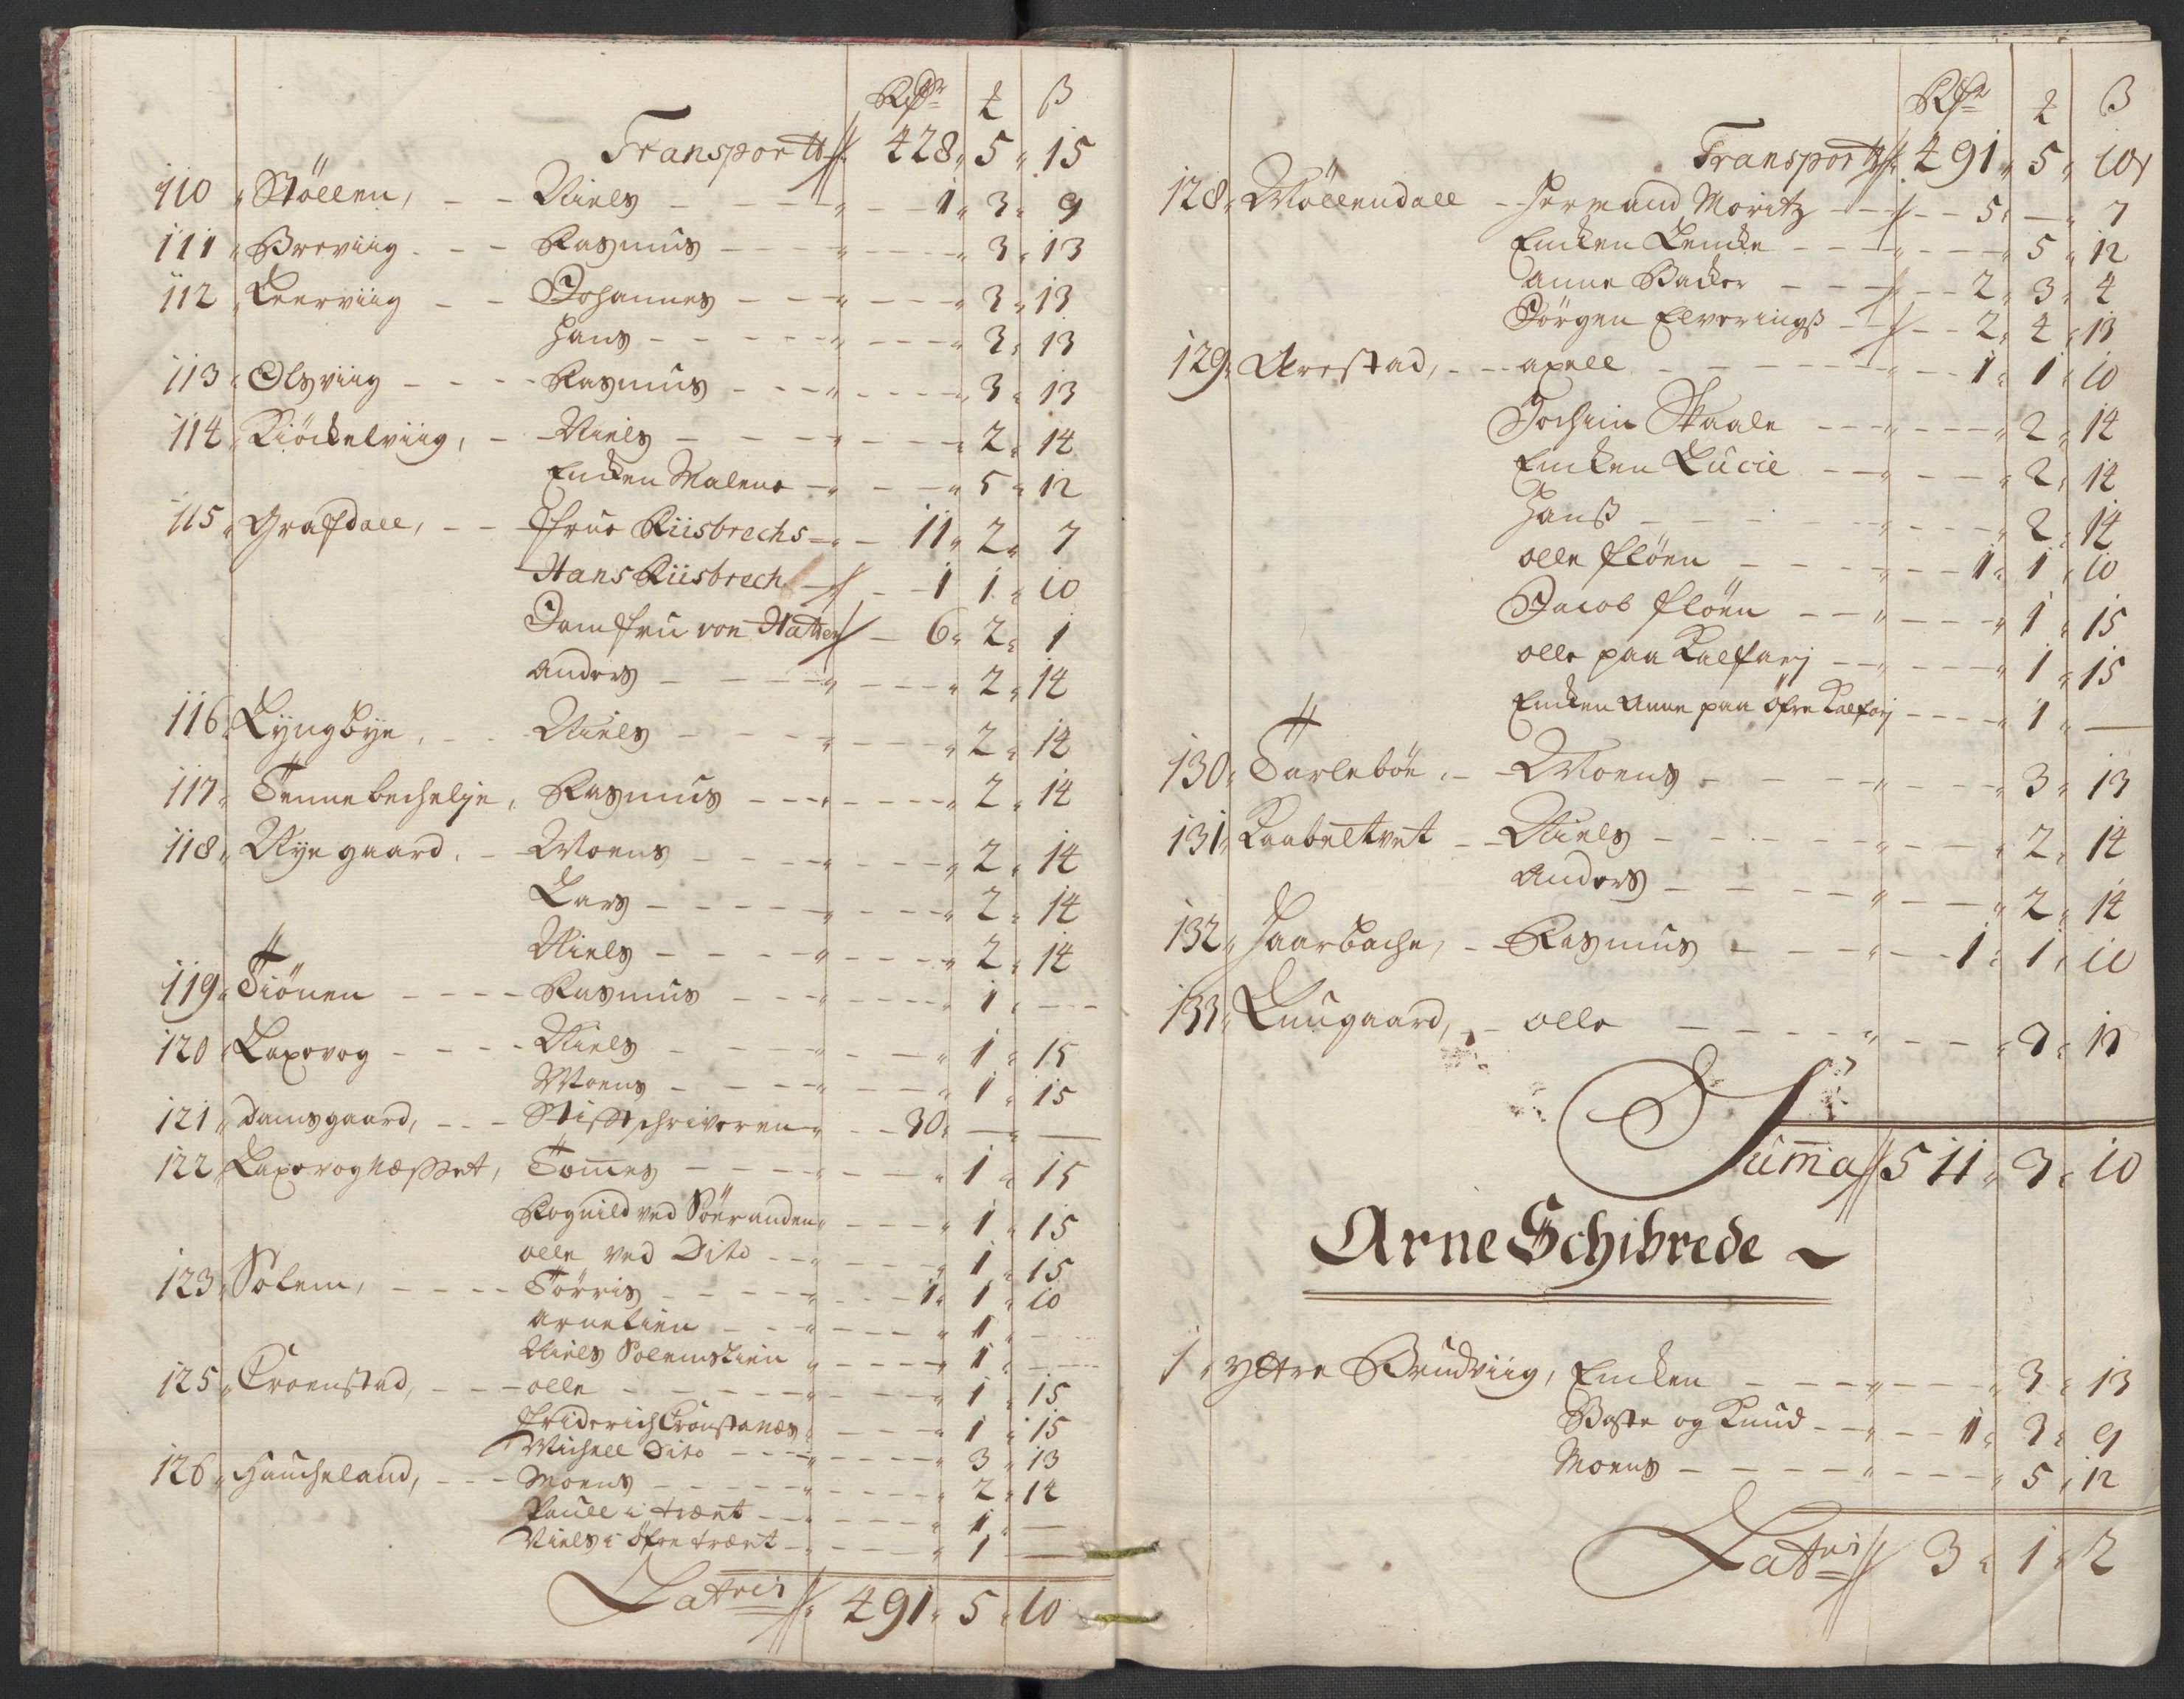 Rdr ȶ ß
Transportt 428 5 15
110 Støllen, Niels 1 3 9
111 Breviig Rasmus 3 13
112 Leerviig Johannes 3 13
Hans 3 13
113 Olsviig Rasmus 3 13
114 Kiöckelviig, Niels 2 14
Encken Malene 5 12
115 Grafdall, Frue Riisbrechs 11 2 7
Hans Riisbrech 1 1 10
Jomfru von Hatten 6 2 1
Anders 2 14
116 Lyngbye, Niels 2 14
117 Tennebechelje, Rasmus 2 14
118 Nyegaard, Moens 2 14
Lars 2 14
Niels 2 14
119 Tiönen Rasmus 1 —
120 Laxevog Niels 1 15
Moens 1 15
121 Damsgaard, Stiftschriveren 30 — —
122 Laxevognæsset, Tommes 1 15
Rognild ved Söestranden 1 15
olle ved Dito 1 15
123 Solem, Törris 1 1 10
Arnelien 1 —
Niels Solemslien 1 —
125 Croenstad, olle 1 15
Friderich Cronstanæs 1 15
Michell Dito 3 13
126 Haucheland, Moens 2 14
Paull i træet 1 —
Niels i öfre træet 1 —
Lateris 491 5 10
Rdr ȶ ß
Transportt 491 5 10
128 Möllendall Hermand Moritz 5 — 7
Encken Lemke 5 12
Anne Backer 2 3 4
Jörgen Elverings 2 4 13
129 Aarestad, axell 1 1 10
Jochim Skaale 2 14
Encken Lucie 2 14
Hanß 2 14
olle flöen 1 1 10
Jacob flöen 1 15
olle paa Kalfari 1 15
Encken Anne paa öfre Kalfari 1 —
130 Tarleböe, Moens 3 13
131 Kaabeltvet Niels 2 14
Anders 2 14
132 Haarbache, Rasmus 1 1 10
133 Luugaard, olle 3 13
Summa 511 3 10
Arne Schibrede
1 yttre Brudviig, Encken 3 13
Baste og Knud 1 3 9
Moens 5 12
Lateris 3 1 2